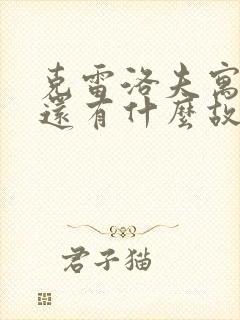 克雷洛夫寓
還有什麼故
君子猫